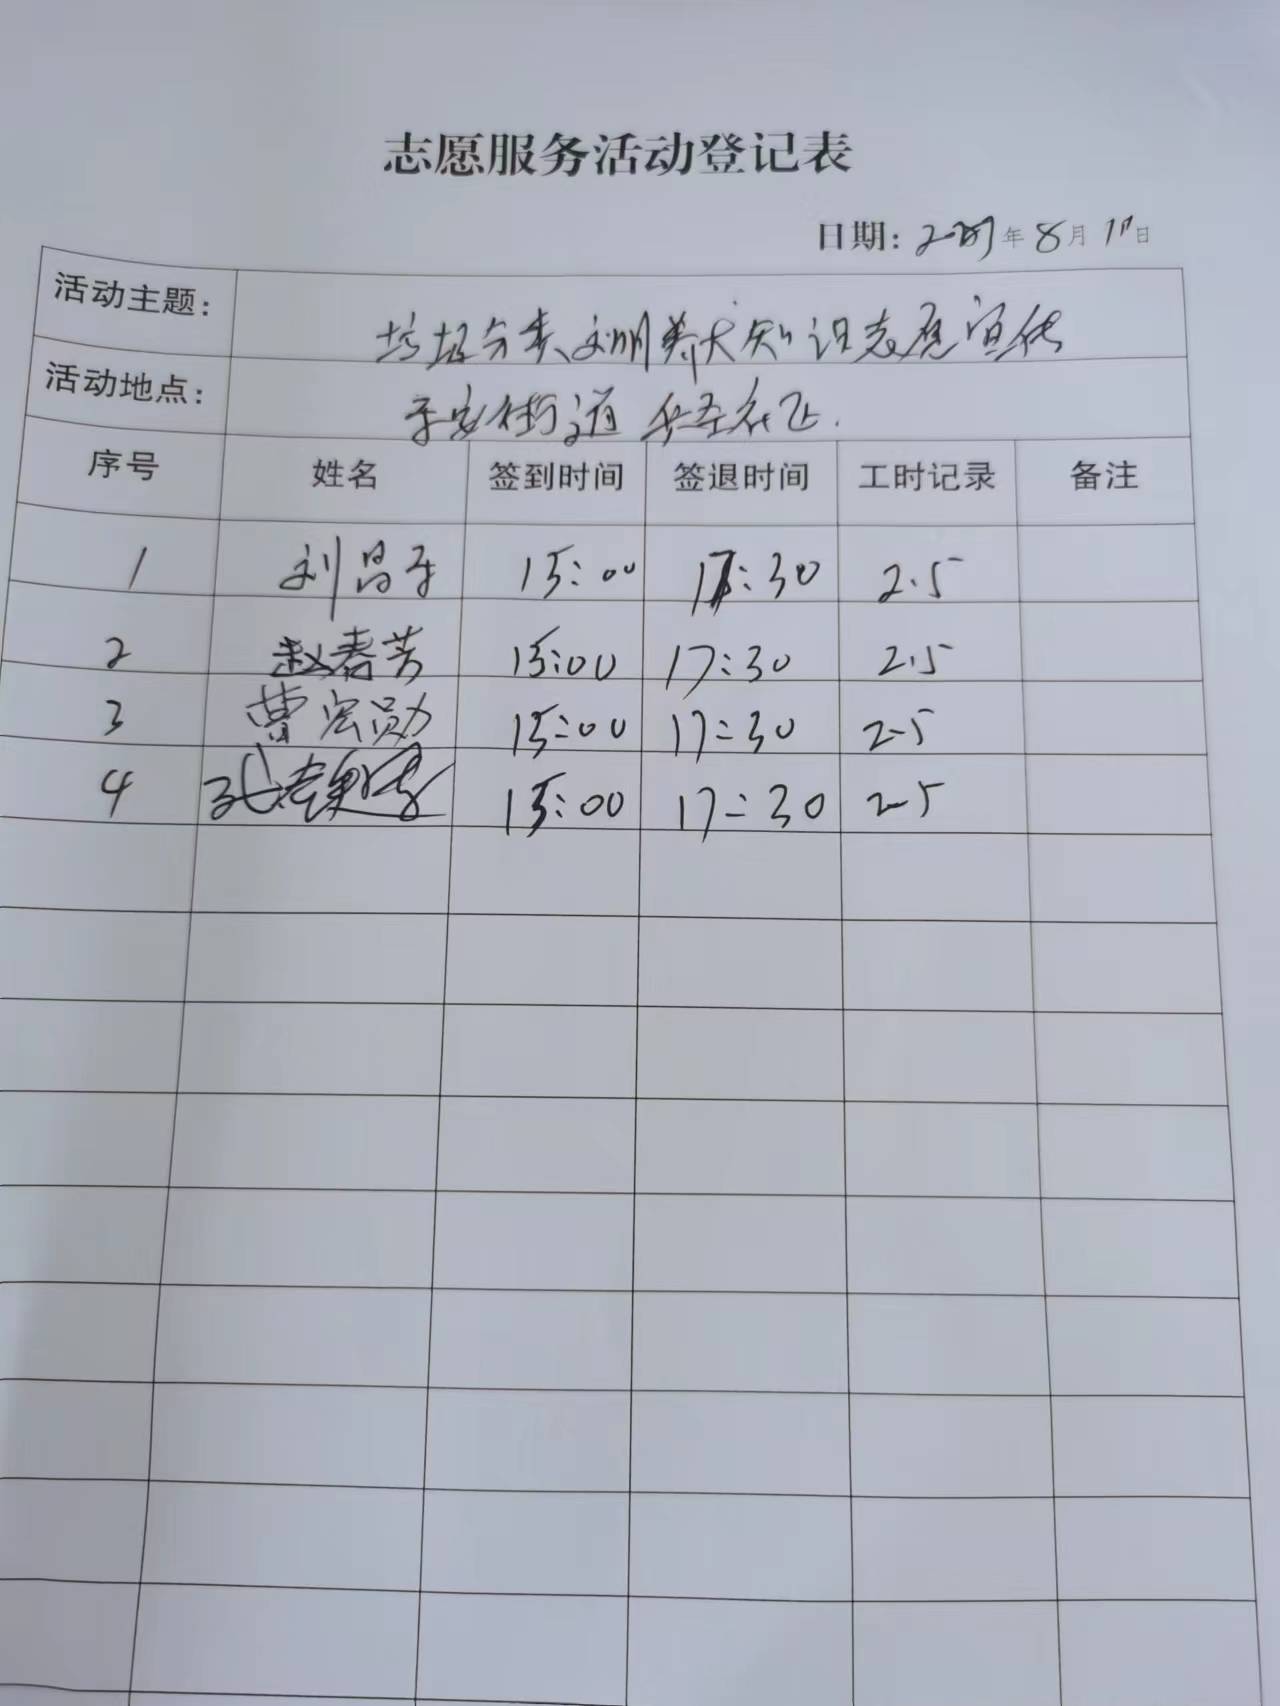 志愿服务活动登记表
日期: 年 8 月 日
活动主题: 垃圾分类文明养犬知识志愿宣传
活动地点: 平安街道
序号 姓名 签到时间 签退时间 工时记录 备注
1 刘昌平 15:00 17:30 2.5
2 赵春芳 15:00 17:30 2.5
3 曹宏勋 15:00 17:30 2.5
4 15:00 17:30 2.5